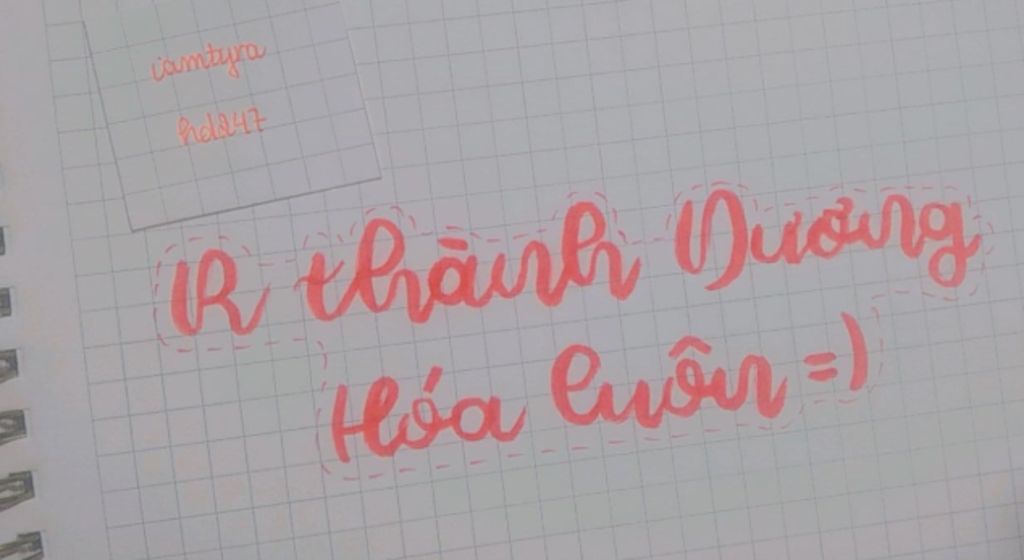 iamtyra
hda247
R thành Dương
Hóa luôn =)